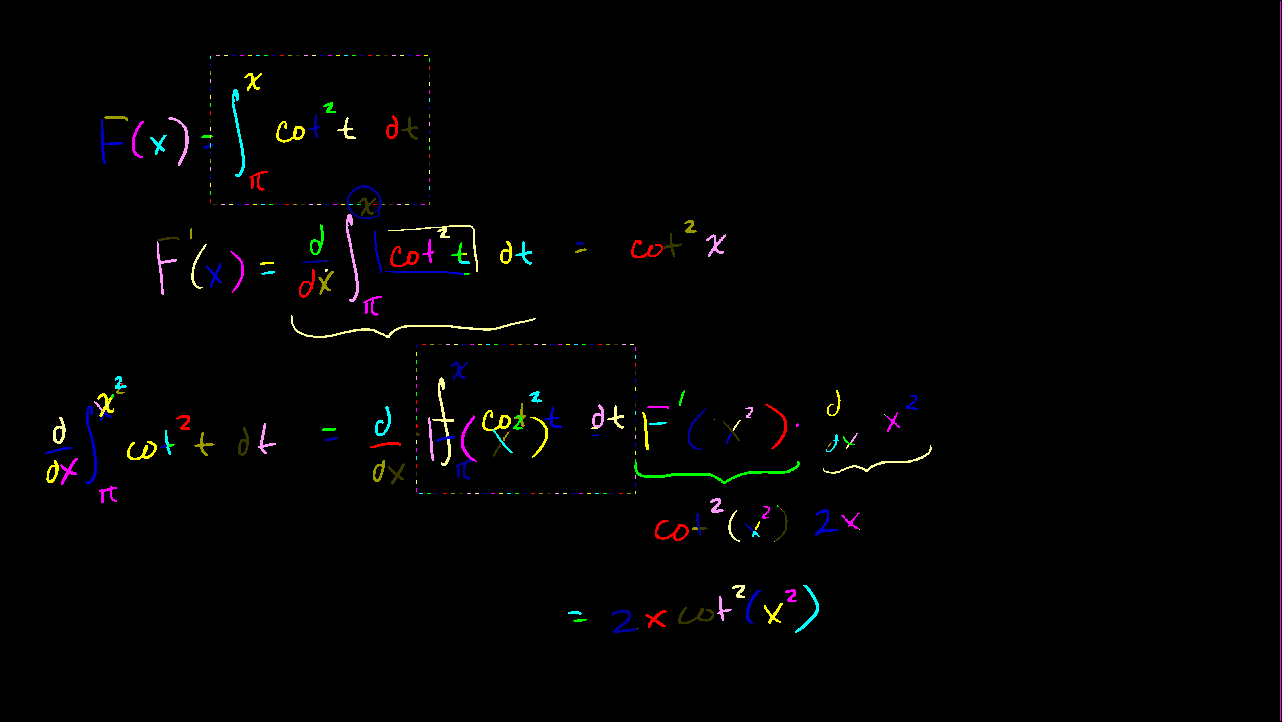 F(x) = ∫_π^x cot² t dt
F'(x) = d/dx ∫_π^x cot² t dt = cot² x
d/dx ∫_π^{x²} cot² t dt = d/dx F'(x²) · d/dx x²
cot² (x²) 2x
= 2x cot² (x²)